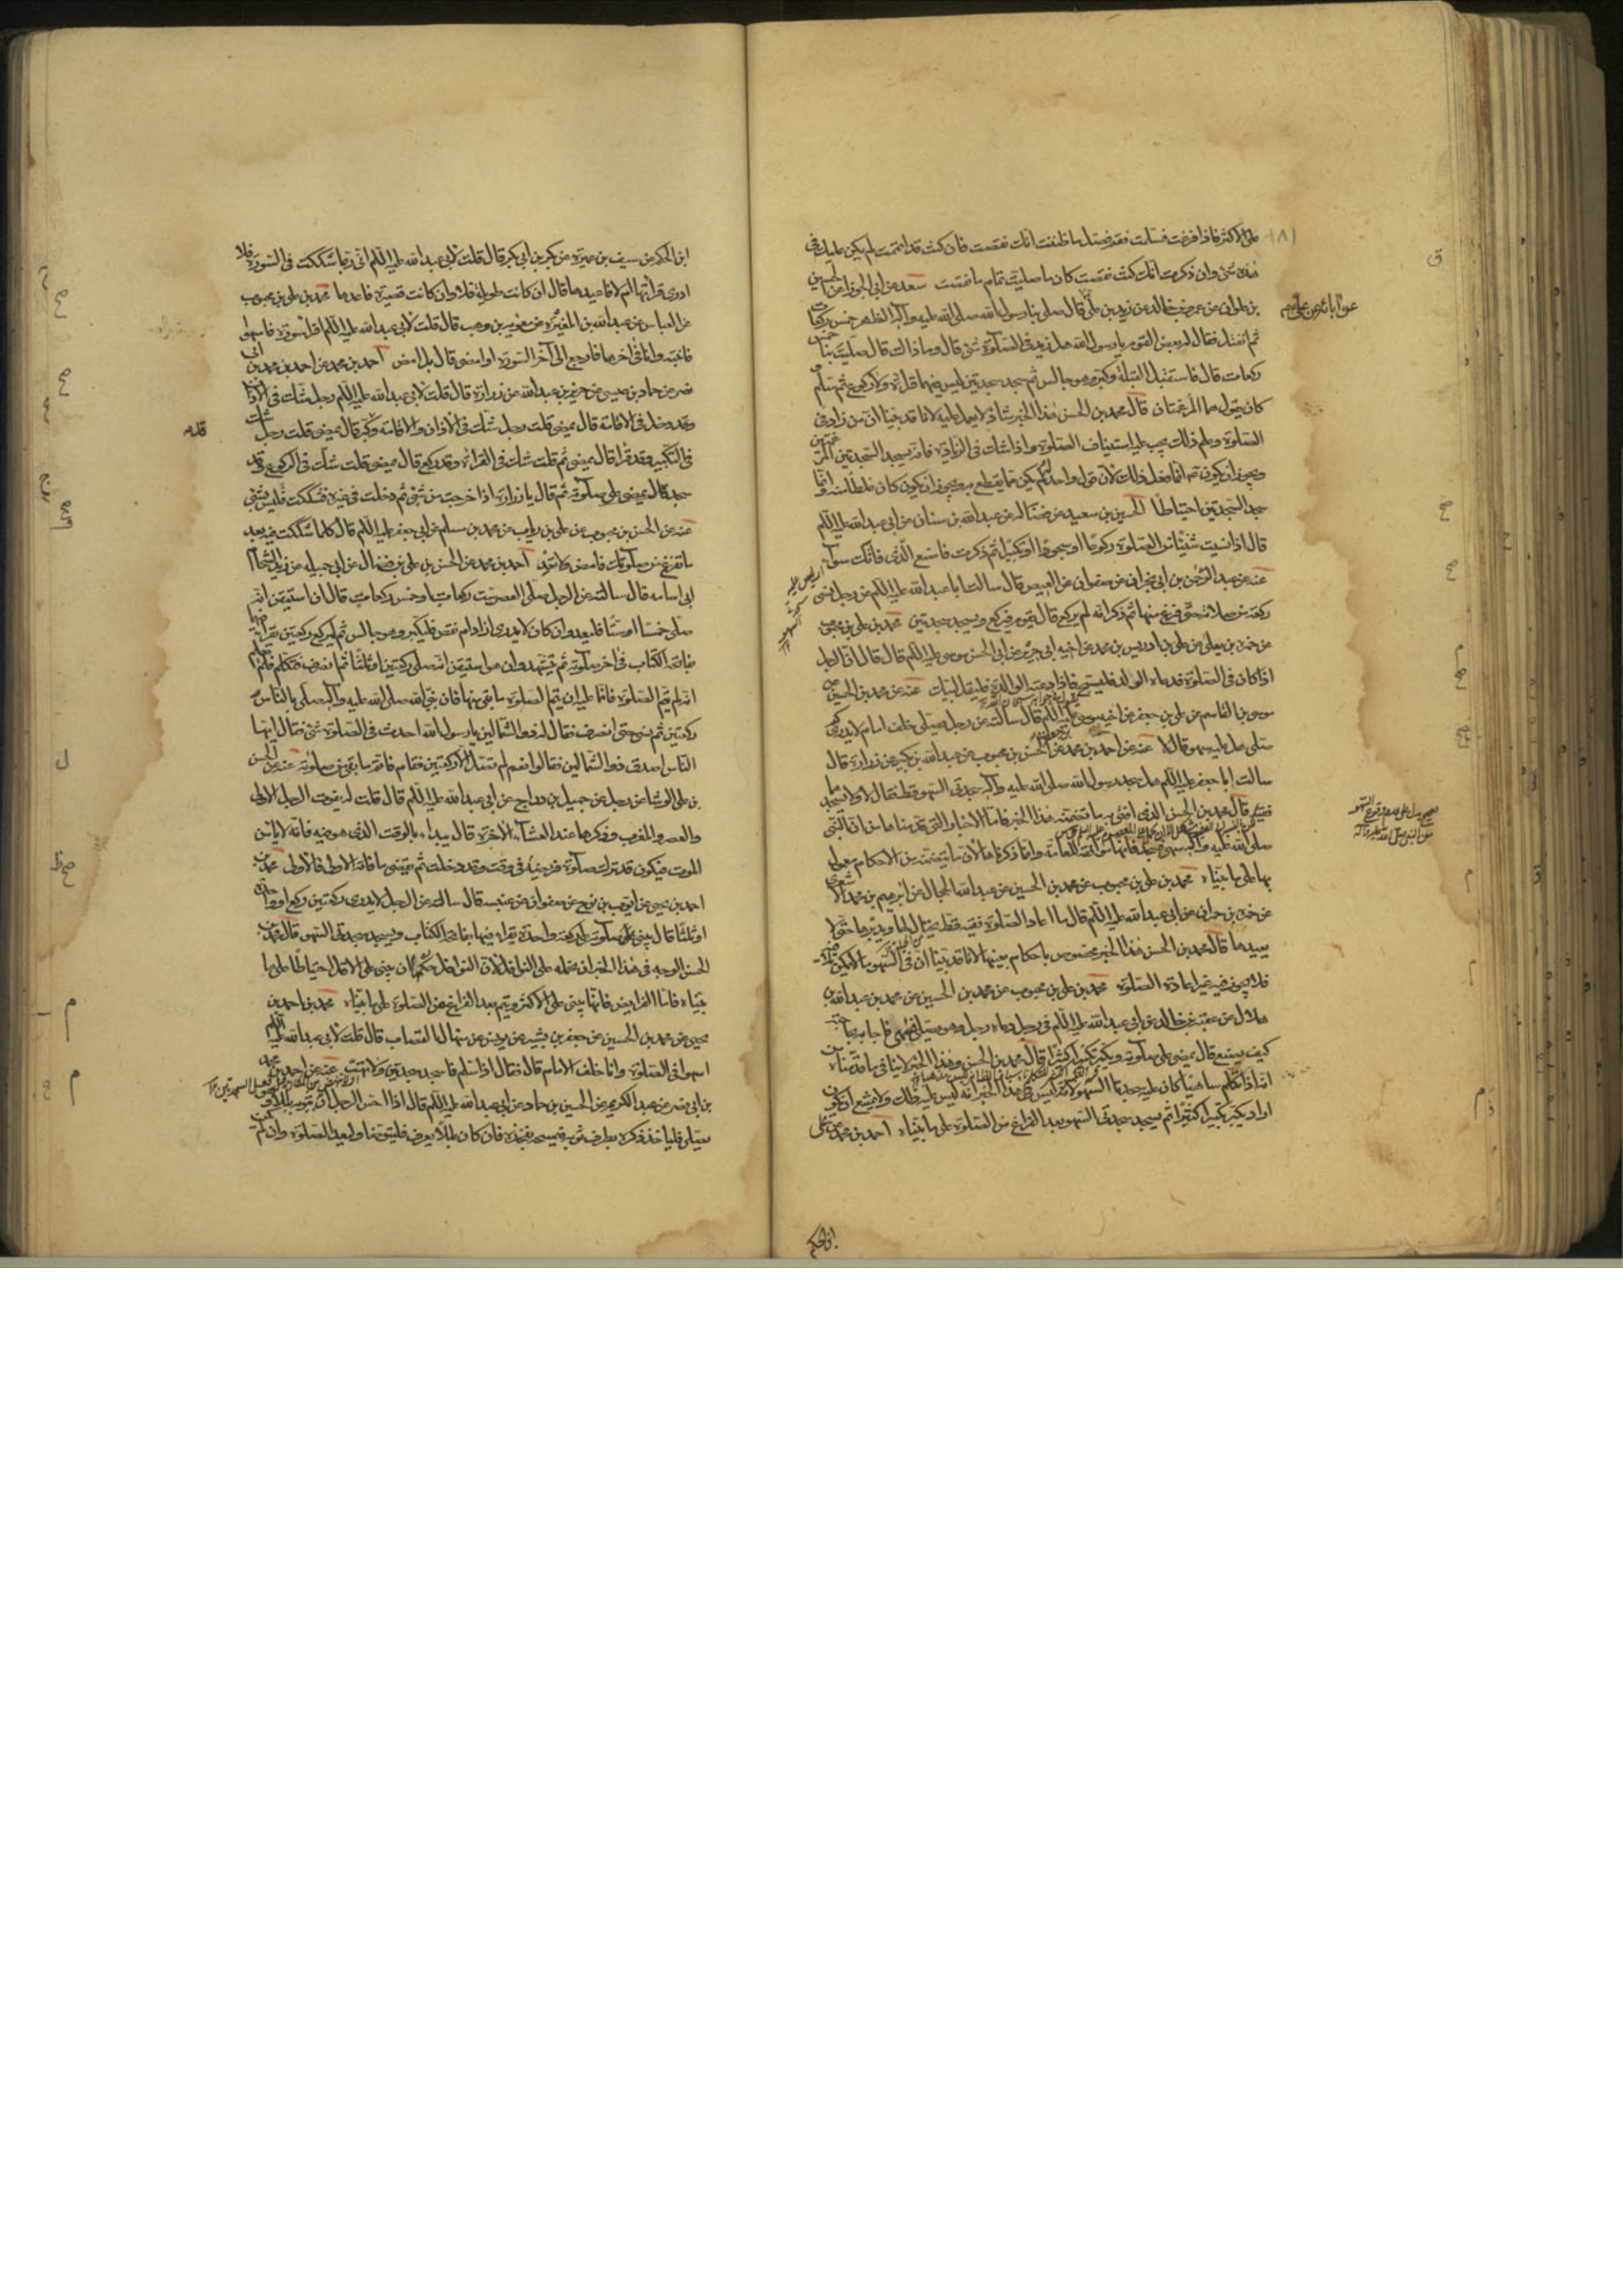 على الاكثر فاذا فرغت فسلمت فقم فصل ما ظننت انك نقصت فان كنت قد اتممت لم يكن عليك في
هذه شئ وان ذكرت انك كنت نقصت كان ما صليت تمام ما نقصت سعد عن ابي الجوزا عن الحسين
بن علوان عن عمرو بن خالد عن زيد بن علي قال صلى بنا رسول الله صلى الله عليه وآله الظهر خمس ركعات
ثم انفتل فقال له بعض القوم يا رسول الله هل زيد في الصلوة شئ قال وما ذاك قال صليت بنا خمس
ركعات قال فاستقبل القبلة وكبر وهو جالس ثم سجد سجدتين ليس فيهما قراءة ولا ركوع ثم سلم
كان يقول هما المرغمتان قال محمد بن الحسن هذا الخبر شاذ لا يعمل عليه لانا قد بينا ان من زاد في
الصلوة وعلم ذلك يجب عليه استيناف الصلوة واذا شك في الزيادة فانه يسجد السجدتين المرغمتين
ويجوز ان يكون انما فعل ذلك لان قول واحد له لم يكن مما يقطع به ويجوز ان يكون كان غلطا منه وانما
سجد السجدتين احتياطا الحسين بن سعيد عن فضالة عن عبدالله بن سنان عن ابي عبدالله عليه السلم
قال اذا نسيت شيئا من الصلوة ركوعا او سجودا او تكبيرا ثم ذكرت فاصنع الذي فاتك سوآء
عنه عن عبدالرحمن بن ابي نجران عن صفوان عن العيص قال سالت ابا عبدالله عليه السلم عن رجل نسي
ركعة من صلاته حتى فرغ منها ثم ذكر انه لم يركع قال يقوم فيركع ويسجد سجدتين محمد بن علي بن محبوب
اذا كان في الصلوة فدعاه الوالد فليسبح فاذا دعته الوالدة فليقل لبيك عنه عن محمد بن الحسين عن
موسى بن القاسم عن علي بن جعفر عن اخيه موسى عليه السلم قال سالته عن رجل يصلي خلف امام لا يدري كم
صلى هل عليه سهو قال لا عنه عن احمد بن محمد عن الحسن بن محبوب عن عبدالله بن بكير عن زرارة قال
سالت ابا جعفر عليه السلم هل سجد رسول الله صلى الله عليه وآله سجدتي السهو قط فقال لا ولا يسجدهما
فقيه قال محمد بن الحسن الذي افتى به ما تضمنه هذا الخبر فاما الاخبار التي قدمناها من ان النبي
صلى الله عليه وآله سهى فسجد فانها موافقة للعامة وانما ذكرناها لان ما تتضمنه من الاحكام معمول
بها على ما بيناه محمد بن علي بن محبوب عن محمد بن الحسين عن عبدالله الحجال عن ابرهيم بن محمد الاشعري
عن حمزة بن حمران عن ابي عبدالله عليه السلم قال ما اعاد الصلوة فقيه قط يحتال لها ويدبرها حتى لا
يعيدها قال محمد بن الحسن هذا الخبر مخصوص باحكام بعينها لانا قد بينا ان في السهو ما لا يمكن تلافيه
فلا يجوز فيه غير اعادة الصلوة محمد بن علي بن محبوب عن محمد بن الحسين عن محمد بن عبدالله بن
هلال عن عقبة بن خالد عن ابي عبدالله عليه السلم في رجل دعاه رجل وهو يصلي فسهى فاجابه بحاجته
كيف يصنع قال يمضي على صلوته ويكبر تكبيرا كثيرا قال محمد بن الحسن وهذا الخبر لا ينافي ما قدمناه من
انه اذا تكلم ساهيا كان عليه سجدتا السهو لانه ليس في هذا الخبر انه ليس عليه ذلك ولا يمتنع ان يكون
اراد يكبر تكبيرا كثيرا ثم يسجد سجدتي السهو بعد الفراغ من الصلوة على ما بيناه احمد بن محمد عن علي
ابن الحكم
ابن الحكم عن سيف بن عميرة عن بكر بن ابي بكر قال قلت لابي عبدالله عليه السلم اني ربما شككت في السورة فلا
ادري قرأتها ام لا فاعيدها قال ان كانت طويلة فلا وان كانت قصيرة فاعدها محمد بن علي بن محبوب
عن العباس عن عبدالله بن المغيرة عن معوية بن وهب قال قلت لابي عبدالله عليه السلم اقرأ سورة فاسهو
فانتبه وانا في آخرها فارجع الى آخر السورة او امضي قال بل امض احمد بن محمد عن احمد بن محمد بن ابي
نصر عن حماد بن عيسى عن حريز بن عبدالله عن زرارة قال قلت لابي عبدالله عليه السلم رجل شك في الاذان
وقد دخل في الاقامة قال يمضي قلت رجل شك في الاذان والاقامة وكبر قال يمضي قلت رجل شك
في التكبير وقد قرأ قال يمضي ثم قلت شك في القراءة وقد ركع قال يمضي قلت شك في الركوع وقد
سجد قال يمضي على صلوته ثم قال يا زرارة اذا خرجت من شئ ثم دخلت في غيره فشككت فليس بشئ
عنه عن الحسن بن محبوب عن علي بن رياب عن محمد بن مسلم عن ابي جعفر عليه السلم قال كلما شككت فيه بعد
ما تفرغ من صلوتك فامض ولا تعد احمد بن محمد عن الحسن بن علي بن فضال عن ابي جميلة عن زيد الشحام
ابي اسامة قال سالته عن الرجل صلى العصر ست ركعات او خمس ركعات قال ان استيقن انه
صلى خمسا او ستا فليعد وان كان لا يدري ازاد ام نقص فليكبر وهو جالس ثم ليركع ركعتين يقرأ فيهما
بفاتحة الكتاب في آخر صلوته ثم يتشهد وان هو استيقن انه صلى ركعتين او ثلثا ثم انصرف فتكلم فلم يعلم
انه لم يتم الصلوة فانما عليه ان يتم الصلوة ما بقي منها فان نبي الله صلى الله عليه وآله صلى بالناس
ركعتين ثم نسي حتى انصرف فقال له ذو الشمالين يا رسول الله احدث في الصلوة شئ فقال ايها
الناس اصدق ذو الشمالين فقالوا نعم لم تصل الا ركعتين فقام فاتم ما بقي من صلوته عنه عن الحسن
بن علي الوشا عن رجل عن جميل بن دراج عن ابي عبدالله عليه السلم قال قلت له يفوت الرجل الاولى
والعصر والمغرب وذكرها عند العشآء الاخرة قال يبدأ بالوقت الذي هو فيه فانه لا يأمن
الموت فيكون قد ترك صلوة فريضة في وقت وقد دخلت ثم يقضي ما فاته الاولى فالاولى محمد بن
احمد بن يحيى عن ايوب بن نوح عن صفوان عن عنبسة قال سالته عن الرجل لا يدري ركعتين ركع او واحدة
او ثلثا قال يبني صلوته على ركعة واحدة يقرأ فيها بفاتحة الكتاب ويسجد سجدتي السهو قال محمد بن
الحسن الوجه في هذا الخبر ان نحمله على النوافل لان النوافل حكمها ان يبني على الاقل احتياطا على ما
بيناه فاما الفرايض فانها يبنى على الاكثر ويتم بعد الفراغ من الصلوة على ما بيناه محمد بن احمد بن
يحيى عن محمد بن الحسين عن جعفر بن بشير عن يونس عن منهال القصاب قال قلت لابي عبدالله عليه السلم
اسهو في الصلوة وانا خلف الامام قال فقال اذا سلم فاسجد سجدتين ولا تهب عنه عن احمد بن محمد
بن ابي نصر عن عبدالكريم عن الحسين بن حماد عن ابي عبدالله عليه السلم قال اذا احس الرجل ان بثوبه بللا وهو
يصلي فلياخذ ذكره بطرف ثوبه فيمسحه بفخذه فان كان بللا يعرف فليتوضأ وليعد الصلوة وان لم يكن